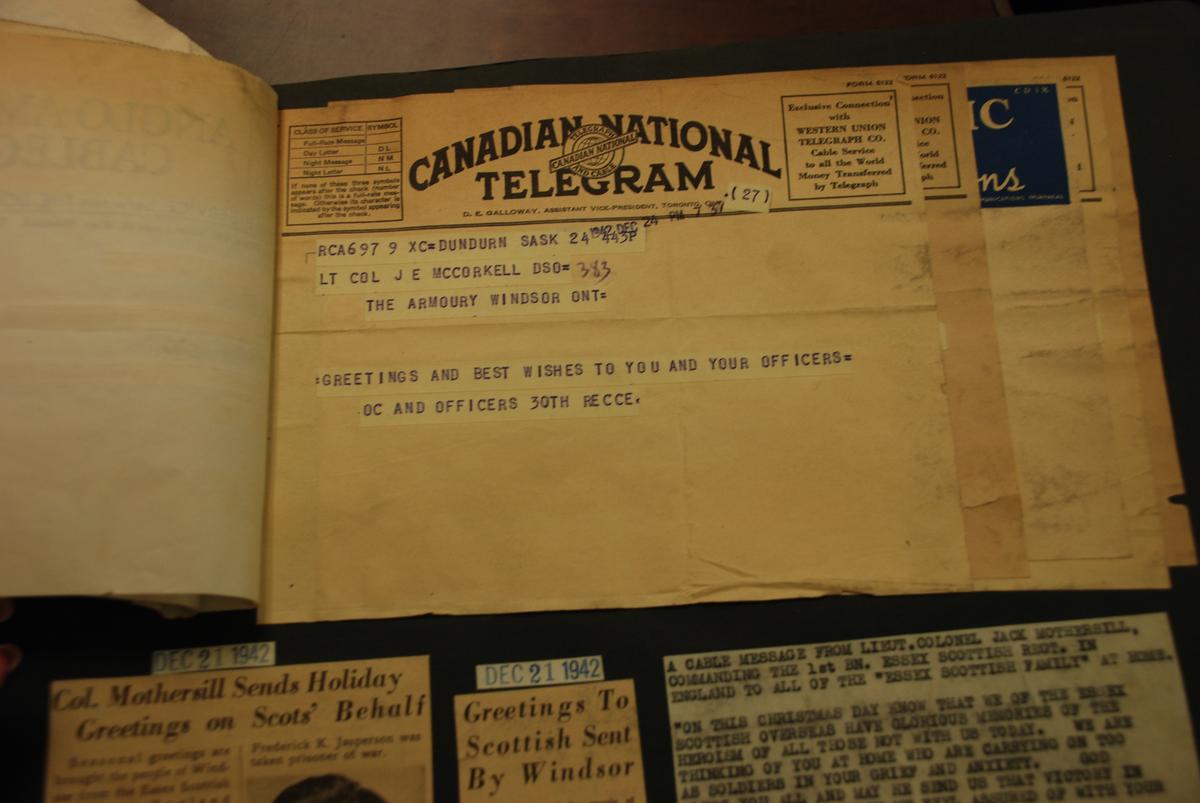 FORM 6122
CLASS OF SERVICE SYMBOL
Full-Rate Message
Day Letter D L
Night Message N M
Night Letter N L
If none of these three symbols
appears after the check (number
of words) this is a full-rate mes-
sage. Otherwise its character is
indicated by the symbol appearing
after the check.
CANADIAN NATIONAL
TELEGRAPH
CANADIAN NATIONAL
AND CABLE
TELEGRAM
D. E. GALLOWAY, ASSISTANT VICE-PRESIDENT, TORONTO, ONT.
Exclusive Connection
with
WESTERN UNION
TELEGRAPH CO.
Cable Service
to all the World
Money Transferred
by Telegraph
.(27)
1942 DEC 24 PM 7 37
RCA697 9 XC=DUNDURN SASK 24 443P
LT COL J E MCCORKELL DSO= 383
THE ARMOURY WINDSOR ONT=
:GREETINGS AND BEST WISHES TO YOU AND YOUR OFFICERS=
.OC AND OFFICERS 30TH RECCE.
FORM 6122
ection
NION
CO.
ice
orld
ferred
ph
6122
IC
ns
DEC 21 1942
Col. Mothersill Sends Holiday
Greetings on Scots' Behalf
Seasonal greetings are
brought the people of Wind-
sor from the Essex Scottish
Frederick K. Jasperson was
taken prisoner of war.
DEC 21 1942
Greetings To
Scottish Sent
By Windsor
A CABLE MESSAGE FROM LIEUT.COLONEL JACK MOTHERSILL,
COMMANDING THE 1st BN. ESSEX SCOTTISH REGT. IN
ENGLAND TO ALL OF THE "ESSEX SCOTTISH FAMILY" AT HOME.
"ON THIS CHRISTMAS DAY KNOW THAT WE OF THE ESSEX
SCOTTISH OVERSEAS HAVE GLORIOUS MEMORIES OF THE
HEROISM OF ALL THOSE NOT WITH US TODAY. WE ARE
THINKING OF YOU AT HOME WHO ARE CARRYING ON TOO
AS SOLDIERS IN YOUR GRIEF AND ANXIETY. GOD
BLESS YOU ALL AND MAY HE SEND US THAT VICTORY IN